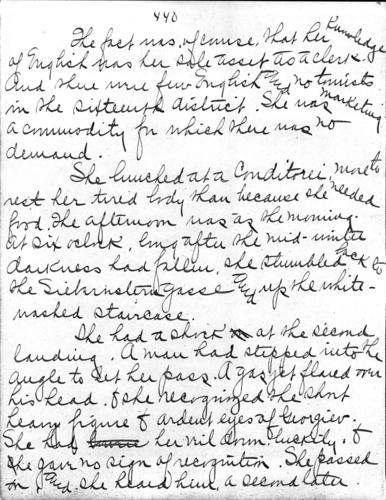 440
The fact was, of course, that her knowledge
of English was her sole asset as a clerk.
And there were few English and no tourists
in the sixteenth district. She was marketing
a commodity for which there was no
demand.
She lunched at a Conditorei, more to
rest her tired body than because she needed
food. The afternoon was as the morning.
At six o'clock, long after the mid-winter
darkness had fallen, she stumbled back to
the Siebensterngasse and up the white-
washed staircase.
She had a shock at the second
landing. A man had stepped into the
angle to let her pass. A gas jet flared over
his head, & she recognized the short
heavy figure & ardent eyes of Georgiev.
She had her veil down luckily, &
he gave no sign of recognition. She passed
on and she heard him a second later